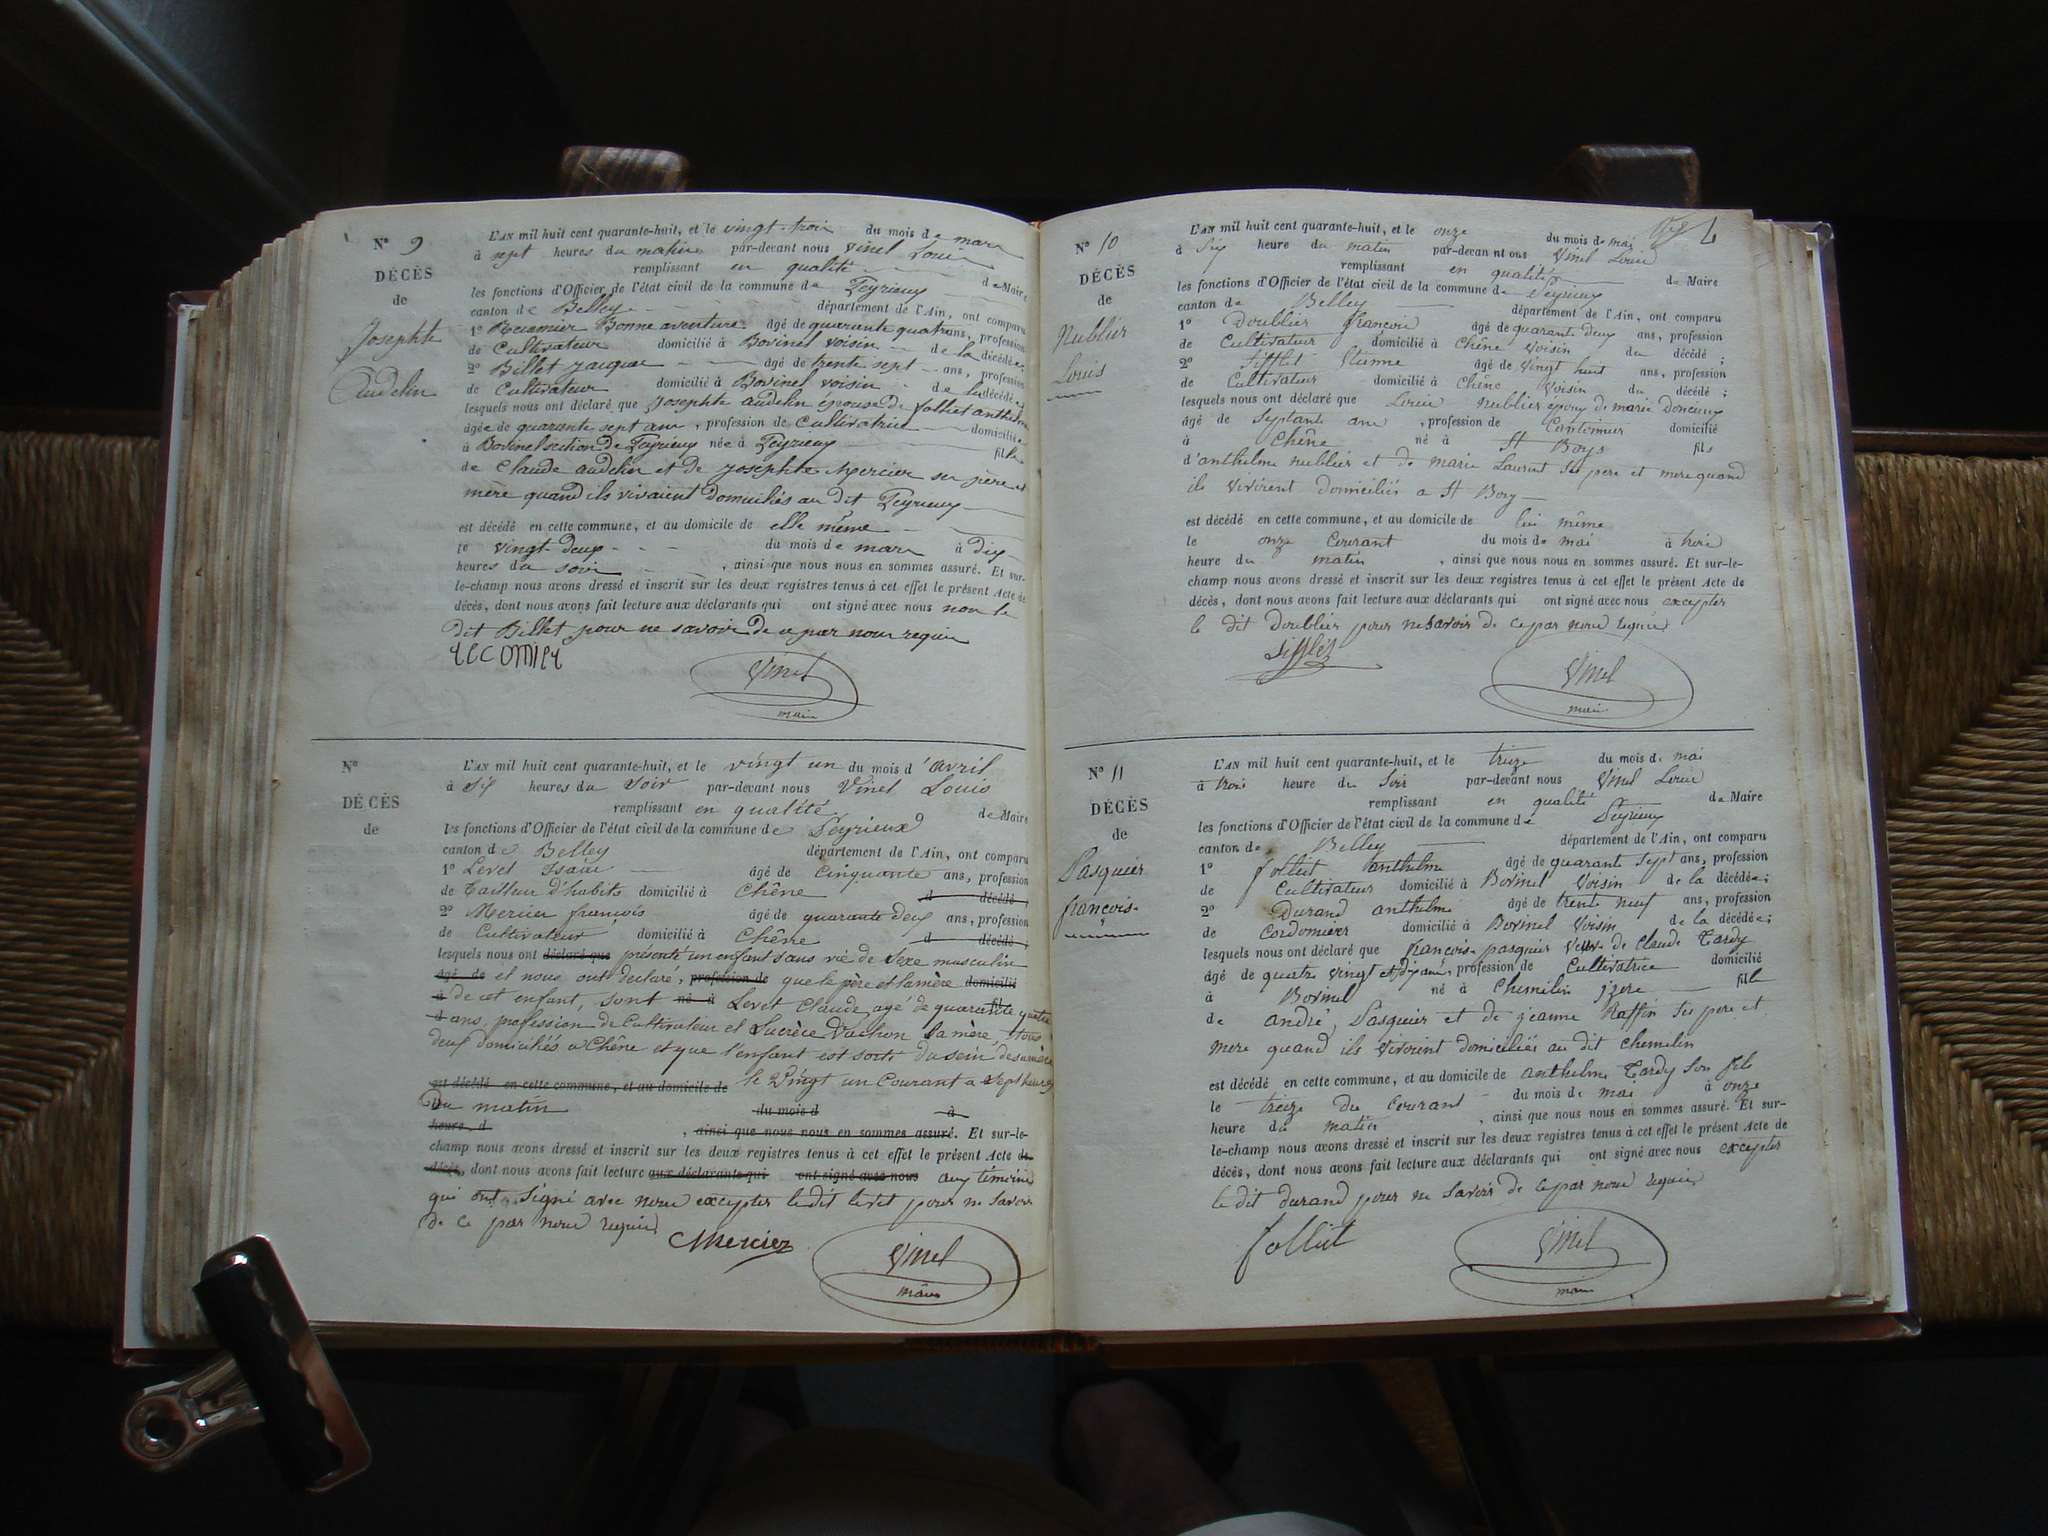 N° 9
DÉCÈS
de
Josephte
Audelin
L'AN mil huit cent quarante-huit, et le vingt-trois du mois de mars
à sept heures du matin par-devant nous Vinel Louis
remplissant en qualité de Maire
les fonctions d'Officier de l'état civil de la commune de Peyrieux
canton de Belley département de l'Ain, ont comparu
1° Bonne aventure âgé de quarante quatre ans, profession
de Cultivateur domicilié à Bovinel voisin de la décédée;
2° Billet Jacque âgé de trente sept ans, profession
de Cultivateur domicilié à Bovinel voisin de la décédée;
lesquels nous ont déclaré que Josephte audelin épouse de folliet anthelme
âgée de quarante sept ans, profession de Cultivatrice domiciliée
à Bovinel section de Peyrieux née à Peyrieux fille
de Claude audelin et de Josephte Mercier ses père et
mère quand ils vivaient domiciliés au dit Peyrieux
est décédé en cette commune, et au domicile de elle même
le vingt-deux du mois de mars à dix
heures du soir, ainsi que nous nous en sommes assuré. Et sur-
le-champ nous avons dressé et inscrit sur les deux registres tenus à cet effet le présent Acte de
décès, dont nous avons fait lecture aux déclarants qui ont signé avec nous non le
dit Billet pour ne savoir de ce par nous requis
recomier
Vinel
maire
N°
DÉCÈS
de
L'AN mil huit cent quarante-huit, et le vingt un du mois d'avril
à six heures du soir par-devant nous Vinel Louis
remplissant en qualité de Maire
les fonctions d'Officier de l'état civil de la commune de Peyrieux
canton de Belley département de l'Ain, ont comparu
1° Levet Isaïe âgé de Cinquante ans, profession
de Tailleur d'habits domicilié à Chêne d décédé;
2° Mercier françois âgé de quarante deux ans, profession
de Cultivateur domicilié à Chêne d décédé;
lesquels nous ont déclaré que présenté un enfant sans vie de Sexe masculin
âgé de et nous ont déclaré, profession de que le père et la mère domicilié
à de cet enfant, sont né à Levet Claude, agé de quarante quatre
d ans, profession de Cultivateur et Lucrèce Vachon sa mère, tous
deux domiciliés a Chêne et que l'enfant est sorti du sein de sa mère
est décédé en cette commune, et au domicile de le Vingt un Courant a sept heures
Du matin du mois d à
heure d, ainsi que nous nous en sommes assuré. Et sur-le-
champ nous avons dressé et inscrit sur les deux registres tenus à cet effet le présent Acte de
décès, dont nous avons fait lecture aux déclarants qui ont signé avec nous aux témoins
qui ont signé avec nous excepter le dit levet pour ne savoir
de ce par nous requis
Mercier
Vinel
maire
N° 10
DÉCÈS
de
Nublier
Louis
L'AN mil huit cent quarante-huit, et le onze du mois de mai
à six heure du matin par-devant nous Vinel Louis
remplissant en qualité de Maire
les fonctions d'Officier de l'état civil de la commune de Peyrieux
canton de Belley département de l'Ain, ont comparu
1° Doublier françois âgé de quarante deux ans, profession
de Cultivateur domicilié à Chêne Voisin du décédé;
2° Sifflet Etienne âgé de Vingt huit ans, profession
de Cultivateur domicilié à Chêne Voisin du décédé;
lesquels nous ont déclaré que Louis Nublier epoux de marie
âgé de Septante ans, profession de Cantonnier domicilié
à Chêne né à St Boys fils
d'anthelme nublier et de marie Laurent ses pere et mere quand
ils vivoient domiciliés a St Boys
est décédé en cette commune, et au domicile de lui même
le onze Courant du mois de mai à trois
heure du matin, ainsi que nous nous en sommes assuré. Et sur-le-
champ nous avons dressé et inscrit sur les deux registres tenus à cet effet le présent Acte de
décès, dont nous avons fait lecture aux déclarants qui ont signé avec nous excepter
le dit Doublier pour ne savoir de ce par nous requis
Sifflet
Vinel
maire
N° 11
DÉCÈS
de
Pasquier
françoise
L'AN mil huit cent quarante-huit, et le treize du mois de mai
à trois heure du Soir par-devant nous Vinel Louis
remplissant en qualité de Maire
les fonctions d'Officier de l'état civil de la commune de Peyrieux
canton de Belley département de l'Ain, ont comparu
1° folliet anthelme âgé de quarante sept ans, profession
de Cultivateur domicilié à Bovinel Voisin de la décédée;
2° Durand anthelme âgé de trente neuf ans, profession
de Cordonnier domicilié à Bovinel Voisin de la décédée;
lesquels nous ont déclaré que françoise pasquier Veuve de Claude Tardy
âgé de quatre vingt et dix ans, profession de Cultivatrice domicilié
à Bovinel né à Chemilin jzere fille
de andré Pasquier et de jeanne Raffin ses pere et
mere quand ils vivoint domiciliés au dit Chemilin
est décédé en cette commune, et au domicile de anthelme Tardy son fils
le treize du courant du mois de mai à onze
heure du matin, ainsi que nous nous en sommes assuré. Et sur-
le-champ nous avons dressé et inscrit sur les deux registres tenus à cet effet le présent Acte de
décès, dont nous avons fait lecture aux déclarants qui ont signé avec nous excepter
le dit durand pour ne savoir de ce par nous requis
folliet
Vinel
maire